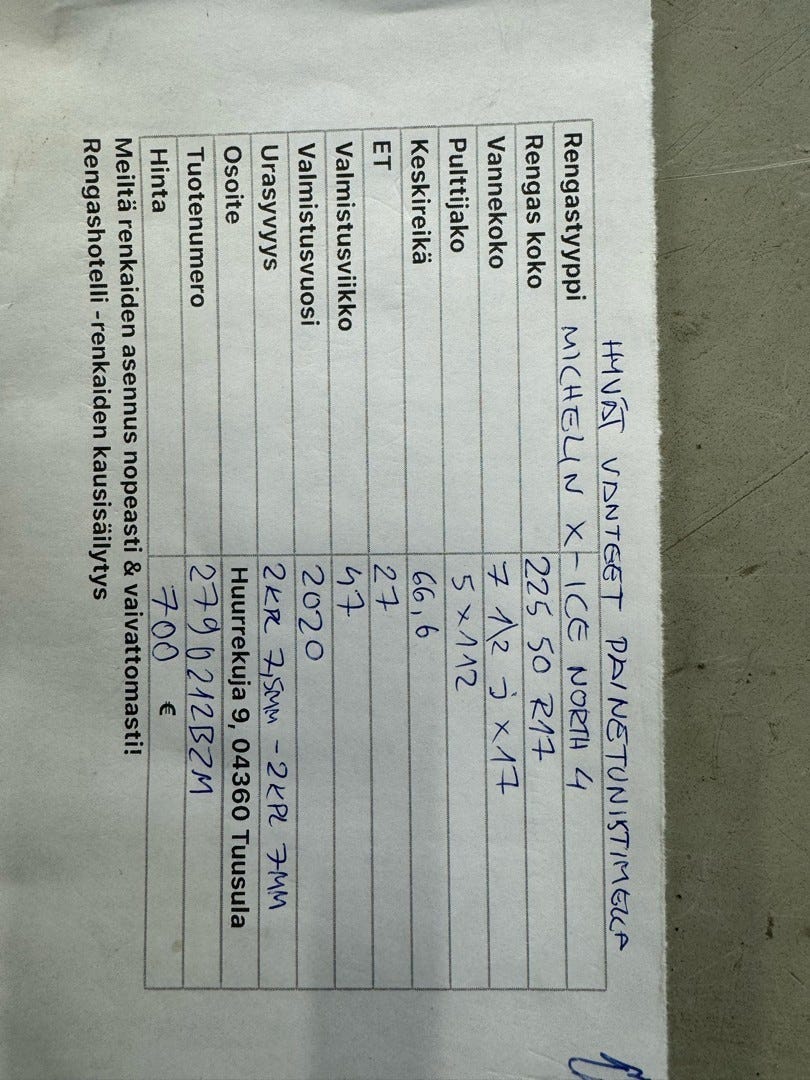 HYVÄT VANTEET PAINETUNISTIMELLA
Rengastyyppi MICHELIN X-ICE NORTH 4
Rengas koko 225 50 R17
Vannekoko 7 1/2 J X17
Pulttijako 5 X112
Keskireikä 66,6
ET 27
Valmistusviikko 47
Valmistusvuosi 2020
Urasyvyys 2KPL 7,5MM - 2KPL 7MM
Osoite Huurrekuja 9, 04360 Tuusula
Tuotenumero
Hinta 700 €
Meiltä renkaiden asennus nopeasti & vaivattomasti!
Rengashotelli -renkaiden kausisäilytys